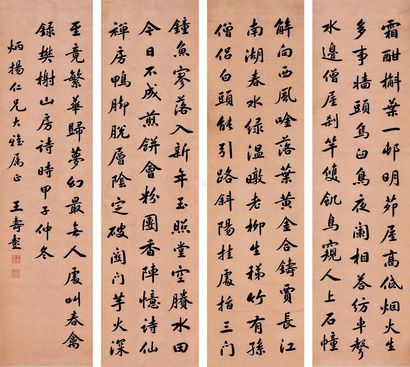 霜酣槲葉一邨明茆屋高低烟火生
多事墙頭烏臼鳥夜闌相答仿車聲
水邊僧屋刹竿雙飢鳥窺人上石幢
解向西風啥落葉黄金合鑄賈長江
南湖春水緑温暾老柳生稊竹有孫
僧侣白頭能引路斜陽挂處指三门
鐘魚寥落入新年玉照堂空賸水田
今日不成煎餅會粉團香陣憶诗仙
禪房鴨脚脱層陰定破闍门芋火深
至竟繁華歸夢幻最無人處叫春禽
録樊榭山房诗時甲子仲冬
炳揚仁兄大雅属正
王壽彭